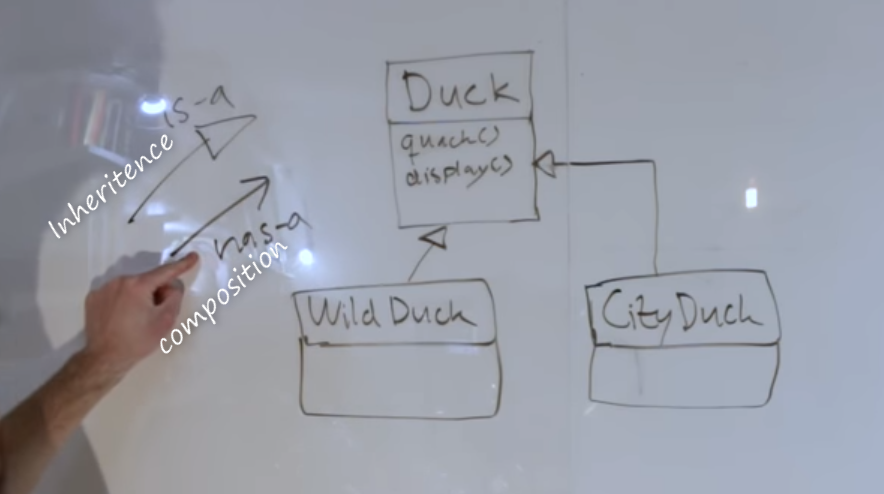 is-a
Inheritence
has-a
composition
Duck
quach()
display()
Wild Duck
City Duck